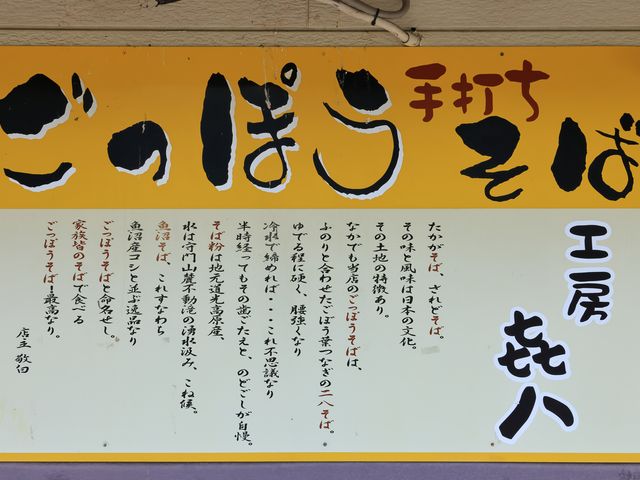 ごのぽう
手打ち
そば
工房
㐂八
たかがそば、されどそば。
その味と風味は日本の文化。
その土地の特徴あり。
なかでも当店のごっぽうそばは、
ふのりと合わせたごぼう葉つなぎの二八そば。
ゆでる程に硬く、腰強くなり
冷水で締めれば・・・これ不思議なり
半時経ってもその歯ごたえと、のどごしが自慢。
そば粉は地元道光高原産、
水は守門山麓不動滝の湧水汲み、こね候。
魚沼そば、これすなわち
魚沼産コシと並ぶ逸品なり
ごっぽうそばと命名せし。
家族皆のそばで食べる
ごっぽうそば！最高なり。
店主 敬白